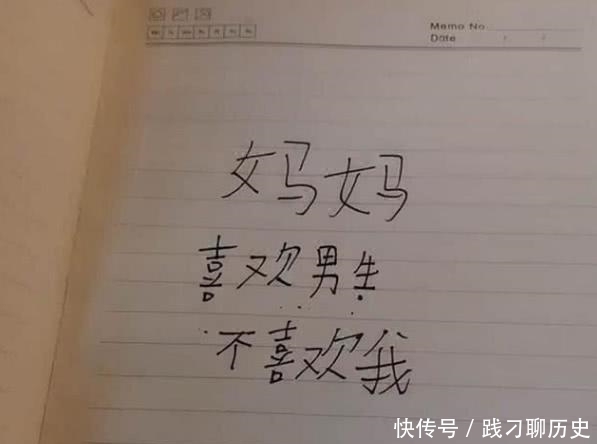 Memo No.
Date
妈妈
喜欢男生
不喜欢我
快传号 / 践刁聊历史